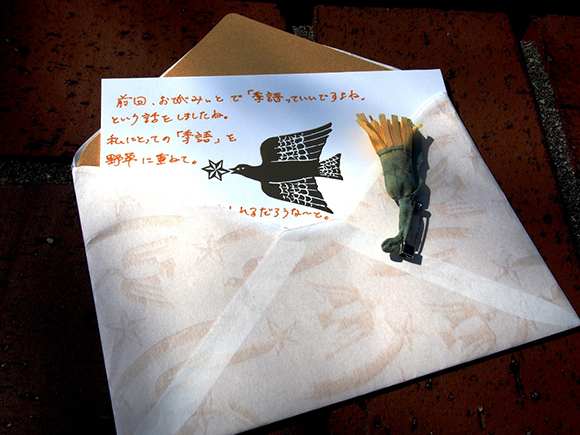 前回、おがみぃとで「季語っていいですよね」
という話をしましたね。
私にとっての「季語」を
野菜に重ねて。
れるだろうな〜と。